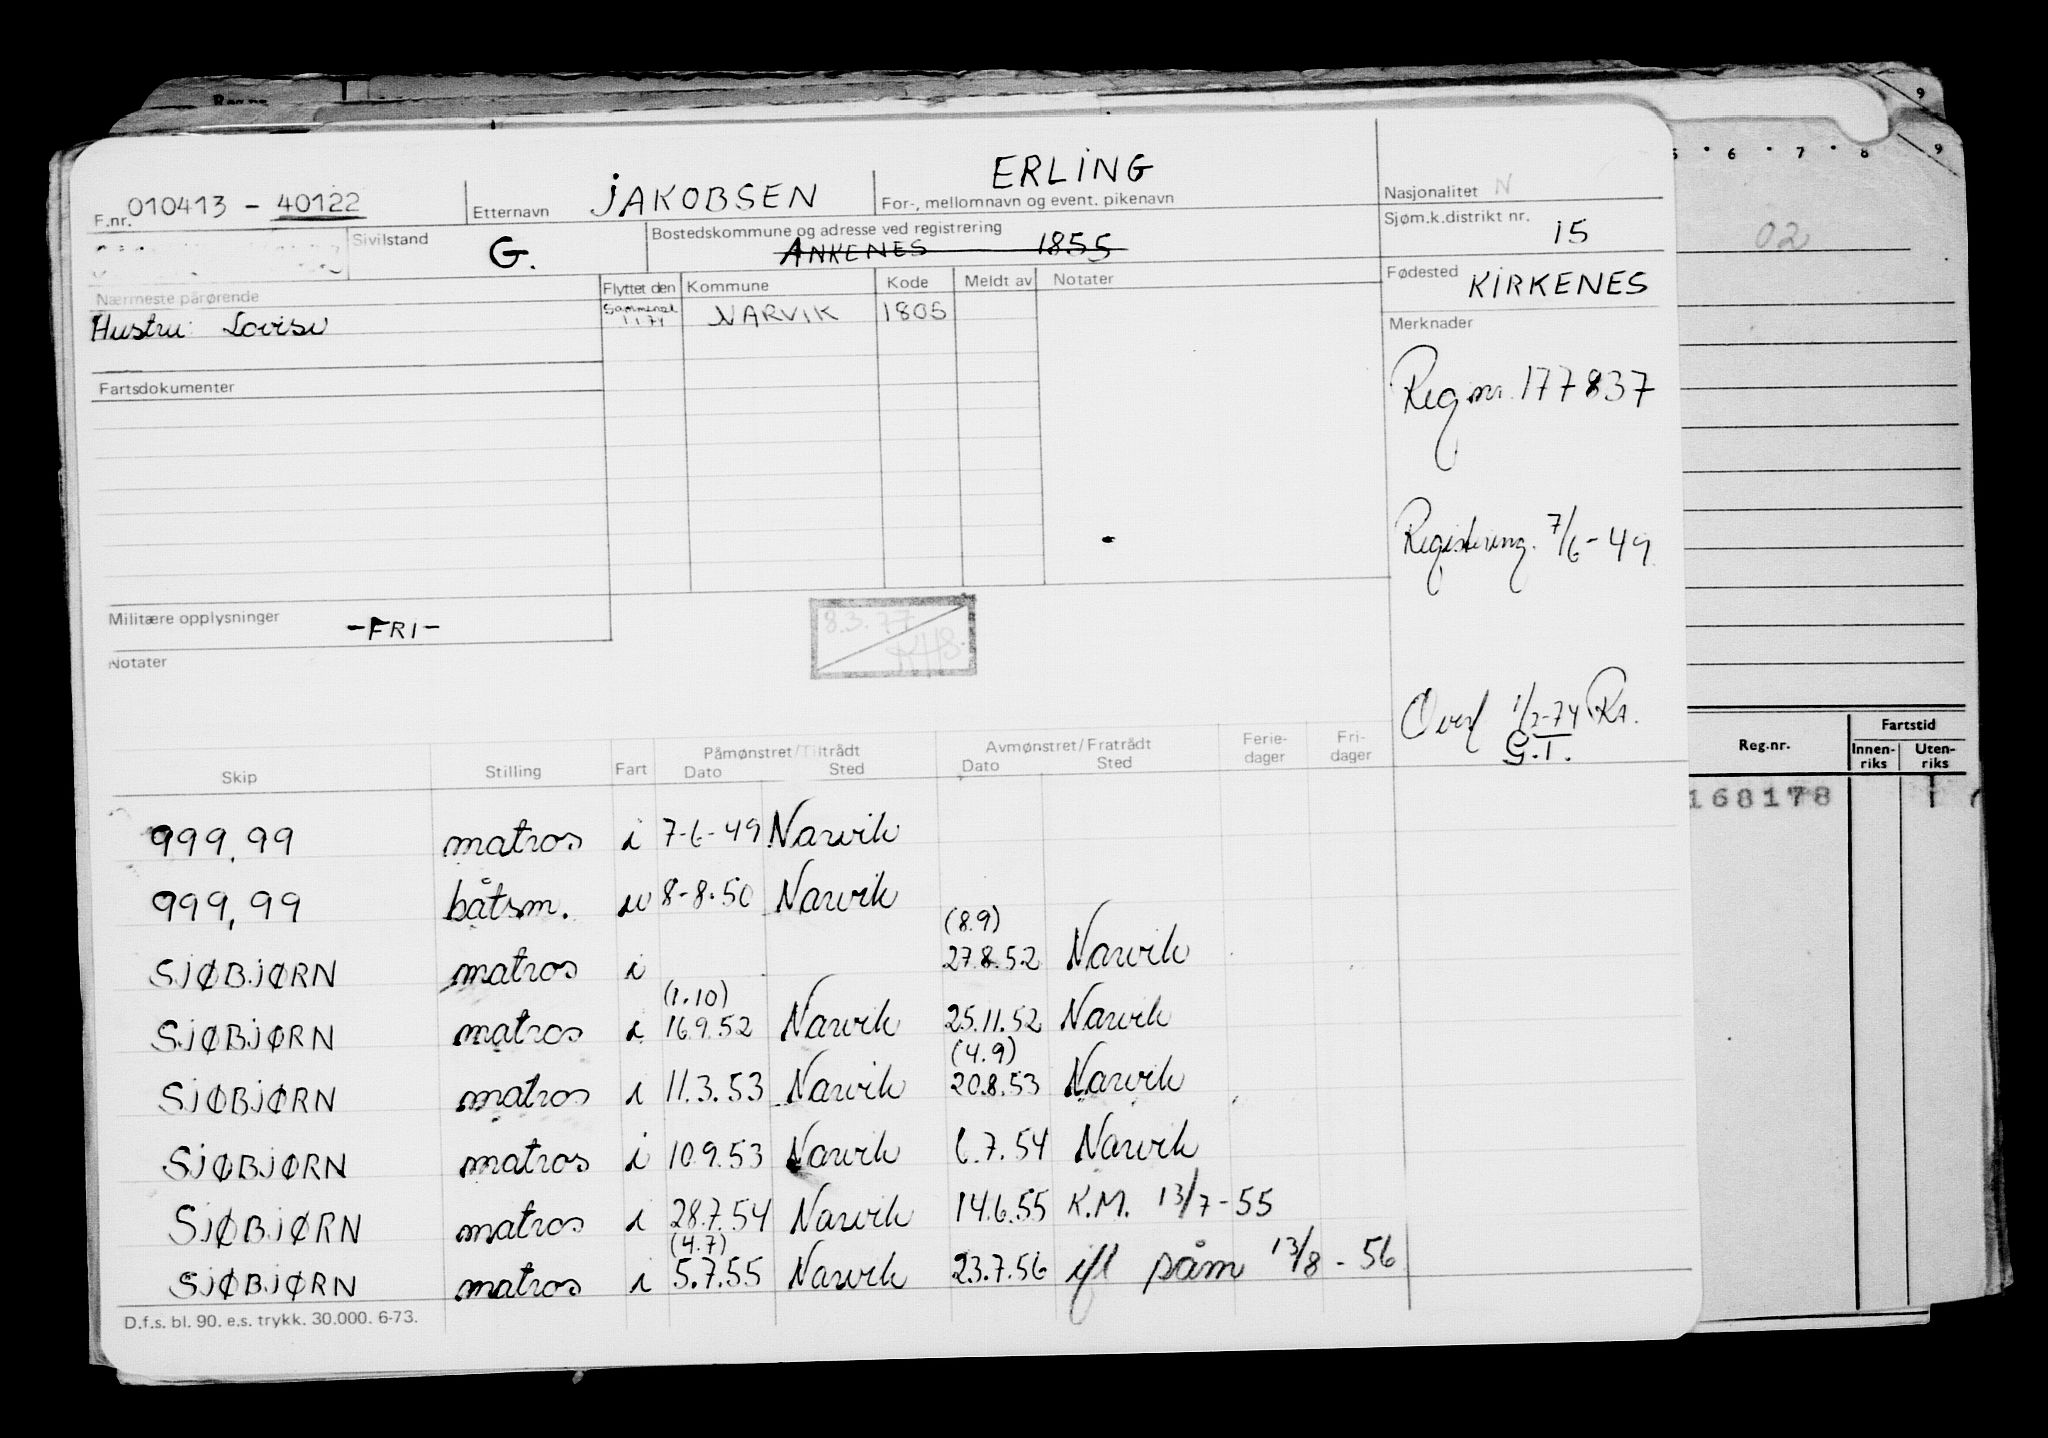 F.nr. 010413 - 40122
Etternavn JAKOBSEN
For-, mellomnavn og event. pikenavn ERLING
Nasjonalitet N
Sivilstand G.
Bostedskommune og adresse ved registrering
ANKENES 1855
Sjøm.k.distrikt nr. 15
Nærmeste pårørende
Hustru: Lovise
Flyttet den Kommune Kode Meldt av Notater
Sammensl. 1.1.74 NARVIK 1805
Fødested KIRKENES
Merknader
Reg nr. 177837
Registrering. 7/6-49
Overf 1/2-74 Ra.
G.I.
Fartsdokumenter
Militære opplysninger -FRI-
8.3.77
KHS.
Notater
Skip Stilling Fart Påmønstret/Tiltrådt Dato Sted Avmønstret/Fratrådt Dato Sted Ferie-dager Fri-dager
999,99 matros i 7-6-49 Narvik
999,99 båtsm. u 8-8-50 Narvik
(8.9)
SJØBJØRN matros i 27.8.52 Narvik
(1.10)
SJØBJØRN matros i 16.9.52 Narvik 25.11.52 Narvik
(4.9)
SJØBJØRN matros i 11.3.53 Narvik 20.8.53 Narvik
SJØBJØRN matros i 10.9.53 Narvik 6.7.54 Narvik
SJØBJØRN matros i 28.7.54 Narvik 14.6.55 K.M. 13/7-55
(4.7)
SJØBJØRN matros i 5.7.55 Narvik 23.7.56 ifl påm 13/8-56
D.f.s. bl. 90. e.s. trykk. 30.000. 6-73.
9
6 · 7 · 8 9
02
Reg.nr. Fartstid
Innen-riks Uten-riks
168178 1